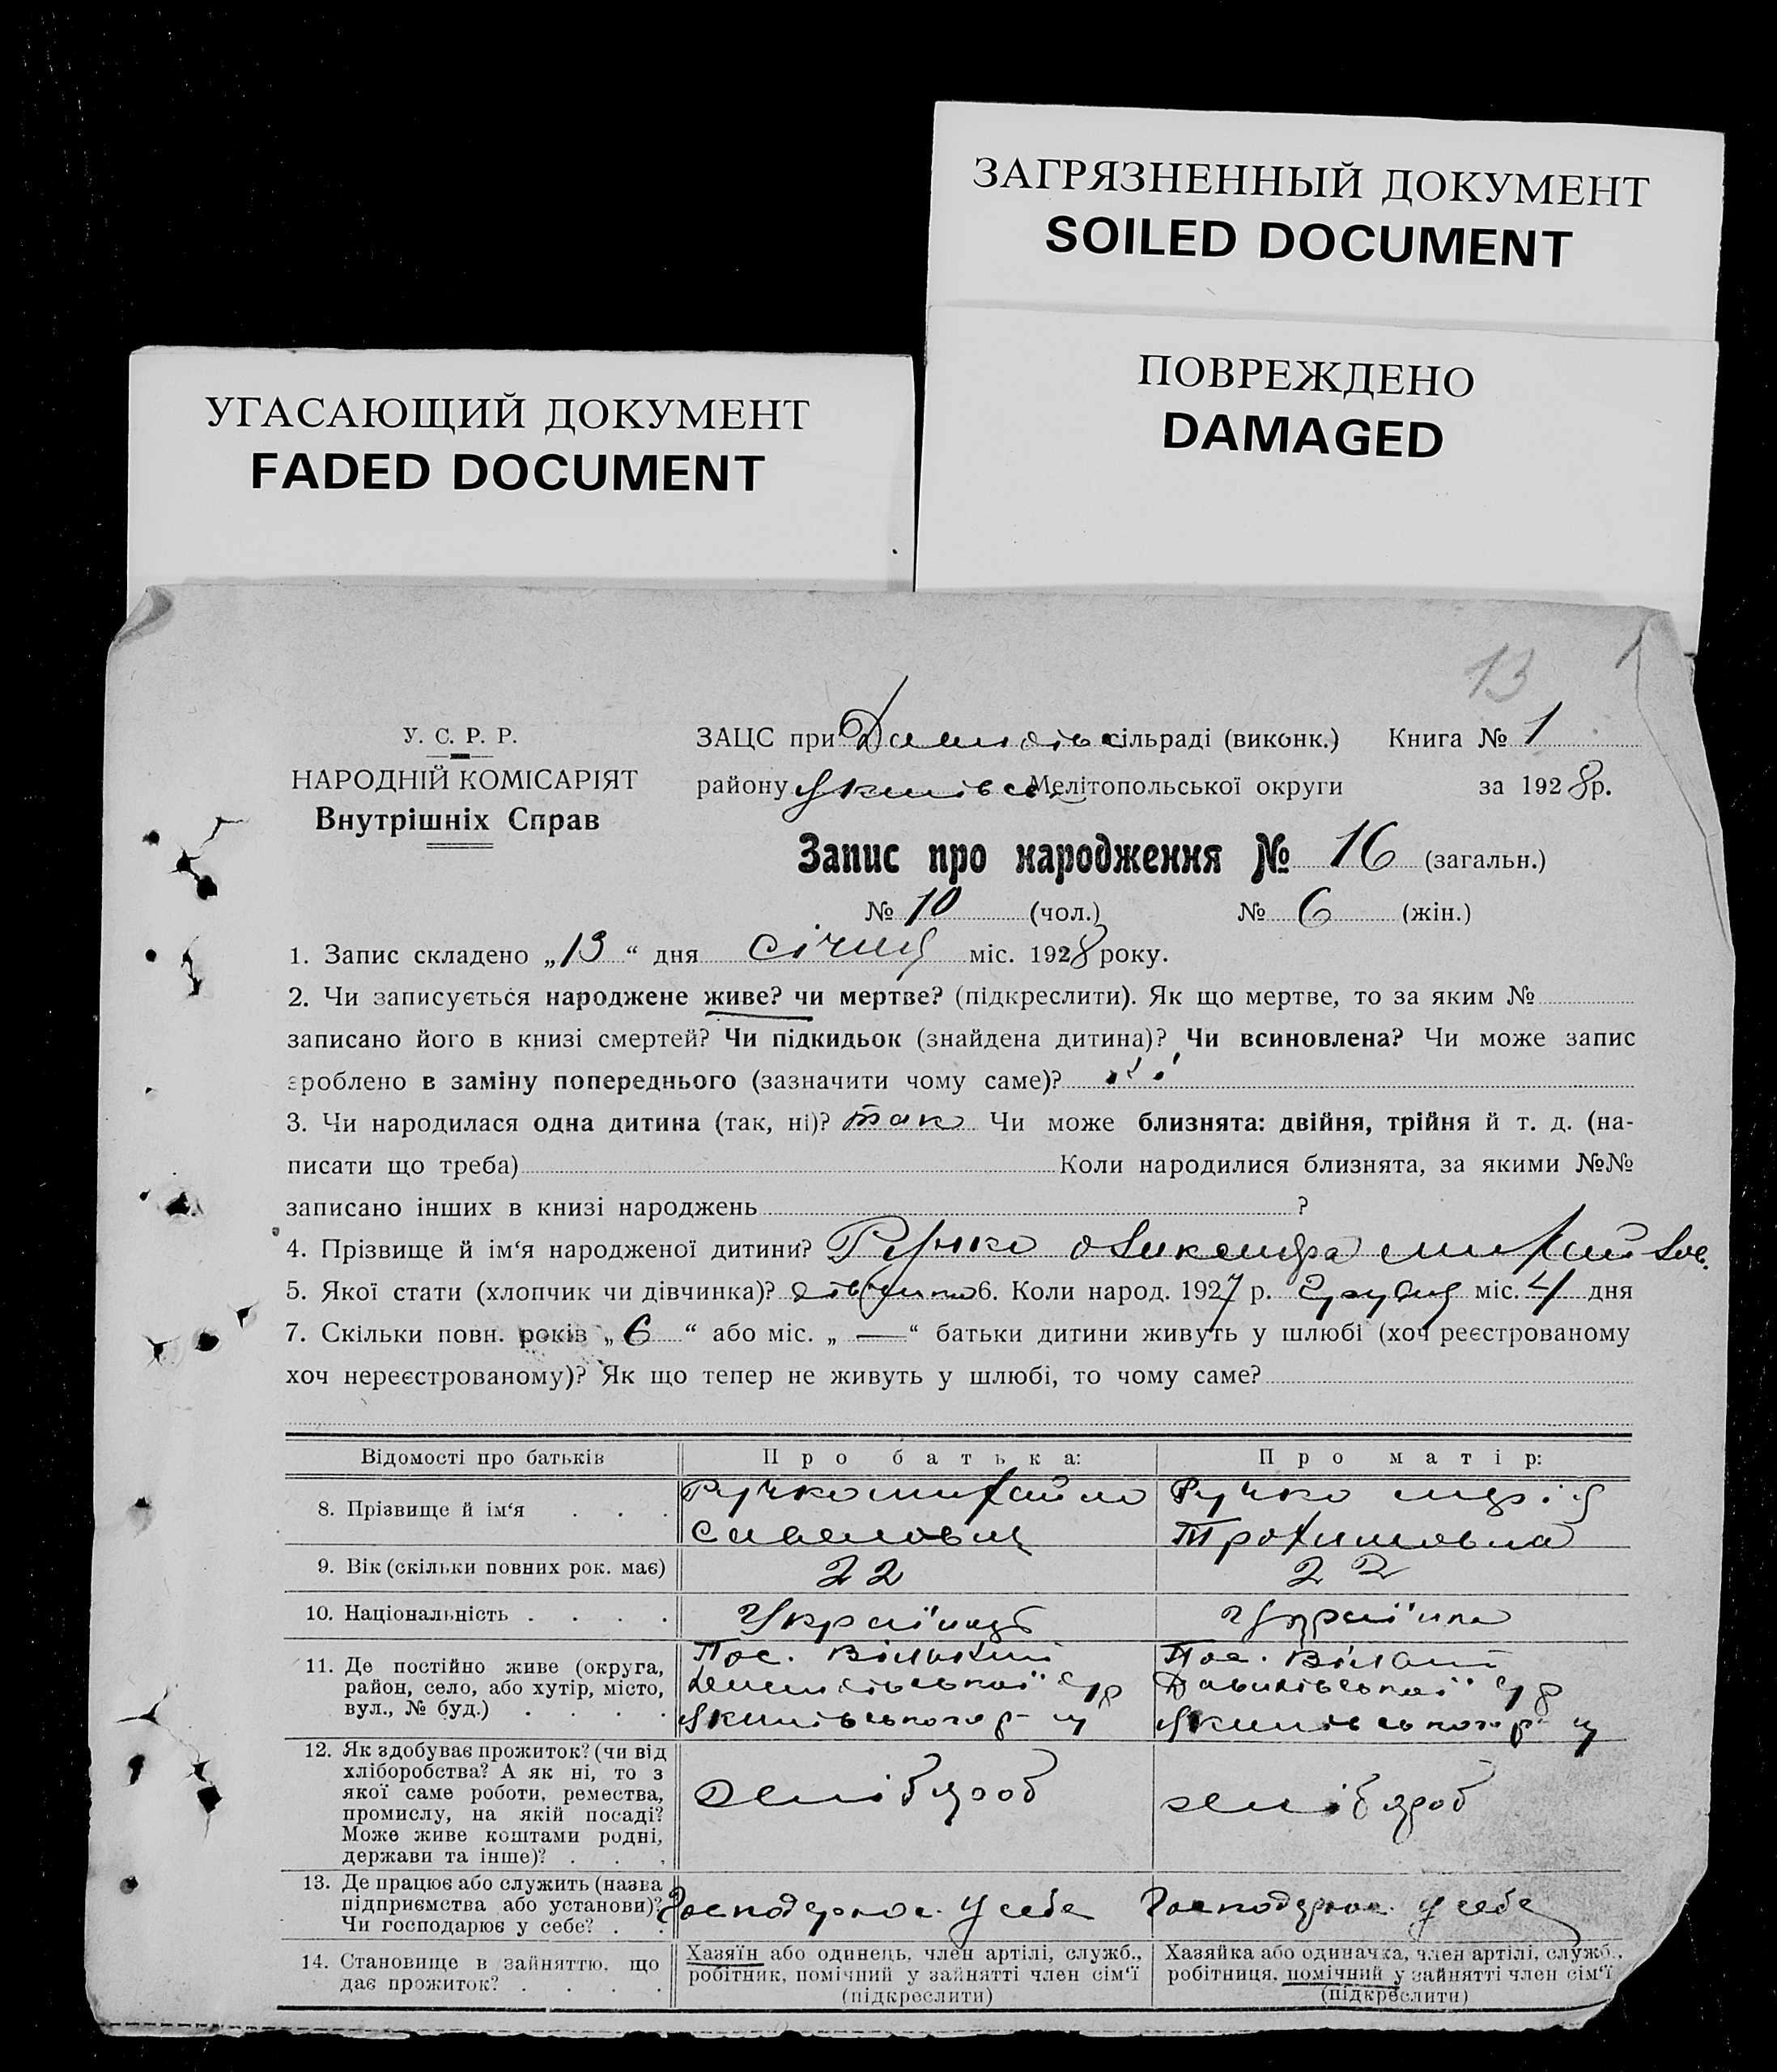 ЗАГРЯЗНЕННЫЙ ДОКУМЕНТ
SOILED DOCUMENT
ПОВРЕЖДЕНО
DAMAGED
УГАСАЮЩИЙ ДОКУМЕНТ
FADED DOCUMENT
13 1
У. С. Р. Р.
НАРОДНІЙ КОМІСАРІЯТ
Внутрішніх Справ
ЗАЦС при сільраді (виконк.) Книга № 1
району Мелітопольської округи за 1928 р.
Запис про народження № 16 (загальн.)
№ 10 (чол.) № 6 (жін.)
1. Запис складено „13“ дня січня міс. 1928 року.
2. Чи записується народжене живе? чи мертве? (підкреслити). Як що мертве, то за яким №
записано його в книзі смертей? Чи підкидьок (знайдена дитина)? Чи всиновлена? Чи може запис
зроблено в заміну попереднього (зазначити чому саме)?
3. Чи народилася одна дитина (так, ні)? так Чи може близнята: двійня, трійня й т. д. (на-
писати що треба) Коли народилися близнята, за якими №№
записано інших в книзі народжень ?
4. Прізвище й ім‘я народженої дитини? Ручко Олександра
5. Якої стати (хлопчик чи дівчинка)? дівчинка 6. Коли народ. 1927 р. грудня міс. 4 дня
7. Скільки повн. років „6“ або міс. „—“ батьки дитини живуть у шлюбі (хоч реєстрованому
хоч нереєстрованому)? Як що тепер не живуть у шлюбі, то чому саме?
Відомості про батьків Про батька: Про матір:
8. Прізвище й ім‘я . . . Ручко Михайло Ручко Марія
Савелович Трохимовна
9. Вік (скільки повних рок. має) 22 22
10. Національність . . . . Українець Українка
11. Де постійно живе (округа, Пос. Вільний Пос. Вільний
район, село, або хутір, місто, с/р Давидівської с/р
вул., № буд.) . . . . Якимівського р-ну Якимівського р-ну
12. Як здобуває прожиток? (чи від
хліборобства? А як ні, то з
якої саме роботи, ремества,
промислу, на якій посаді?
Може живе коштами родні,
держави та інше)? . . .
13. Де працює або служить (назва
підприємства або установи)? Господарює у себе Господарює у себе
Чи господарює у себе? . .
14. Становище в зайняттю, що
дає прожиток? . . . .
Хазяїн або одинець, член артілі, служб.,
робітник, помічний у зайнятті член сім‘ї
(підкреслити)
Хазяйка або одиначка, член артілі, служб.,
робітниця, помічний у зайнятті член сім‘ї
(підкреслити)